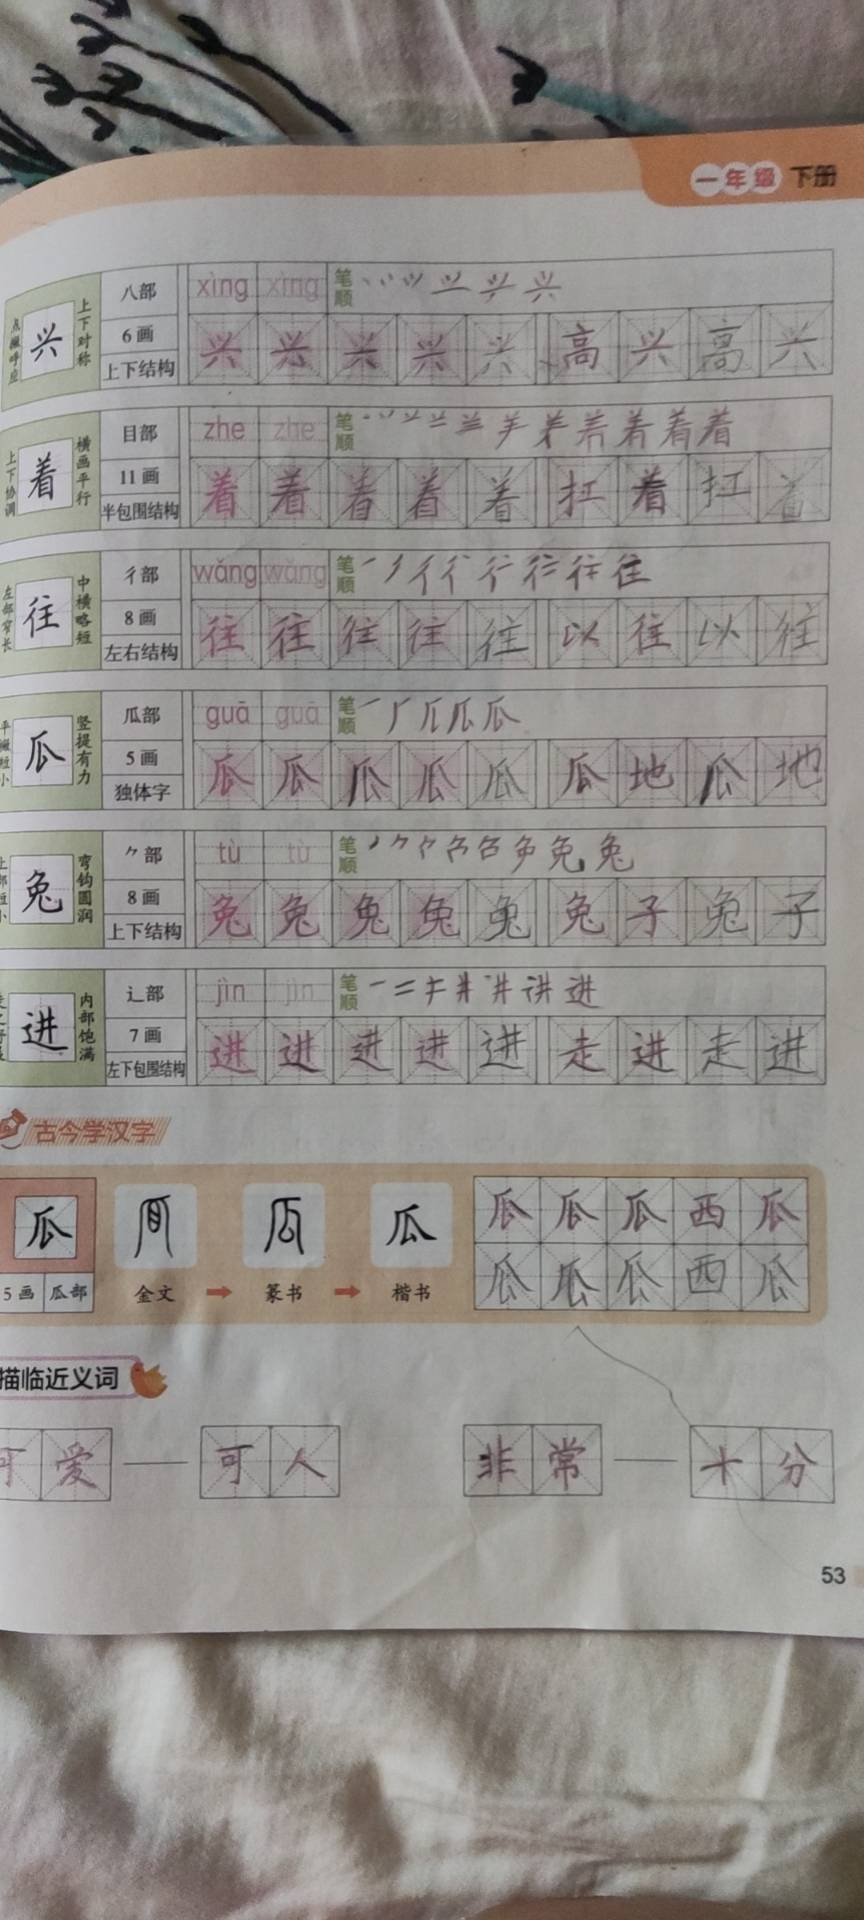 一年级 下册
点撇呼应 兴 上下对称 八部 xìng xìng 笔顺
6画 兴 兴 兴 兴 兴 高 兴 高 兴
上下结构
上下协调 着 横画平行 目部 zhe zhe 笔顺
11画 着 着 着 着 着 扛 着 扛 着
半包围结构
左部窄长 往 中横略短 彳部 wǎng wǎng 笔顺
8画 往 往 往 往 往 以 往 以 往
左右结构
平撇短小 瓜 竖提有力 瓜部 guā guā 笔顺
5画 瓜 瓜 瓜 瓜 瓜 瓜 地 瓜 地
独体字
上部短小 兔 弯钩圆润 ⺈部 tù tù 笔顺
8画 兔 兔 兔 兔 兔 兔 子 兔 子
上下结构
进 内部饱满 辶部 jìn jìn 笔顺
7画 进 进 进 进 进 走 进 走 进
左下包围结构
古今学汉字
瓜 瓜 瓜 瓜 瓜 西 瓜
瓜 瓜 瓜 西 瓜
5画 瓜部 金文 → 篆书 → 楷书
描临近义词
可爱——可人 非常——十分
53